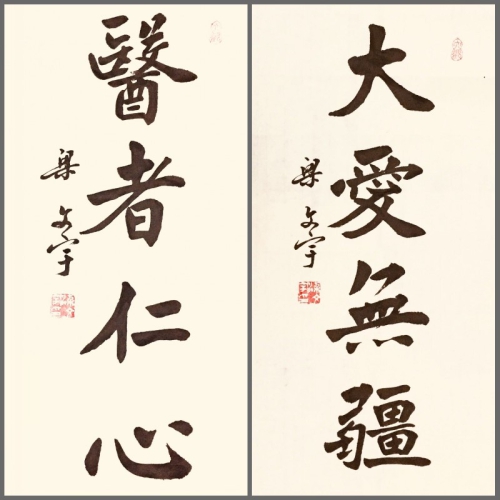 大愛無疆
梁文宇
醫者仁心
梁文宇